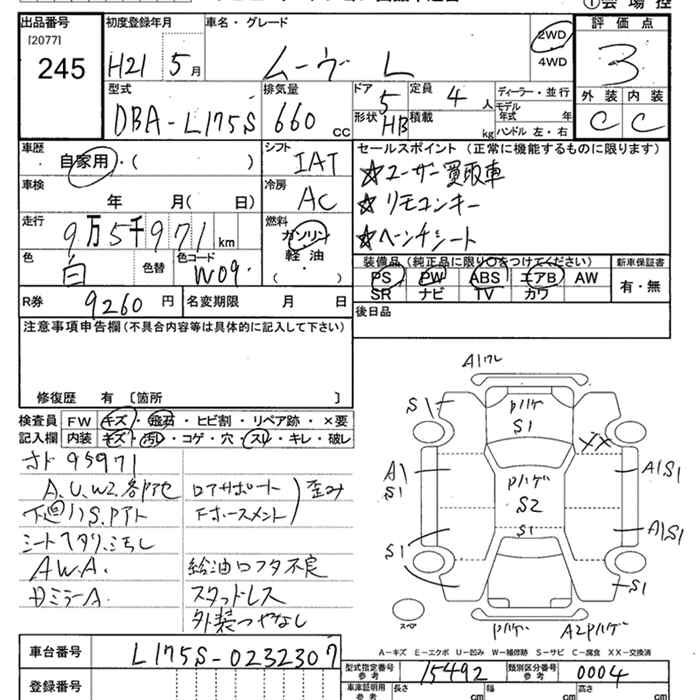 出品番号
[2077]
245
初度登録年月
H21 5月
車名・グレード
ムーヴ L
2WD
4WD
①会場控
評価点
3
外装 内装
C C
型式
DBA-L175S
排気量
660 CC
ドア
5
形状 HB
定員
4 人
積載
kg
ディーラー・並行
モデル
年式 年
ハンドル 左・右
車歴
自家用・( )
車検
年 月( 日)
走行
9万5千971 km
色
白
色替
色コード
W09
シフト
IAT
冷房
AC
燃料
ガソリン
軽油
( )
R券 9260円
名変期限 月 日
セールスポイント (正常に機能するものに限ります)
☆ユーザー買取車
☆リモコンキー
☆ベンチシート
装備品(純正品に限り○をつけてください)
PS PW ABS エアB AW
SR ナビ TV カワ
新車保証書
有・無
後日品
注意事項申告欄(不具合内容等は具体的に記入して下さい)
修復歴 有〔箇所 〕
検査員
記入欄
FW キズ・飛石・ヒビ割・リペア跡・×要
内装 キズ・汚レ・コゲ・穴・スレ・キレ・破レ
95971
A.U.W2.各
下廻りS.
シートヘタリ
A.W.A.
ロアサポート
歪み
給油ロフタ不良
スタッドレス
外装つやなし
Aワレ
S1
Pハゲ
S1
XX
A
S1
A1S1
Pハゲ
S2
S1
S1
A1S1
S1
スペア
Pハゲ
A2Pハゲ
A-キズ E-エクボ U-凹み W-補修跡 S-サビ C-腐食 XX-交換済
車台番号
L175S-0232307
登録番号
型式指定番号
参考
15492
類別区分番号
参考
0004
車庫証明用
参考
長さ cm
幅 cm
高さ cm